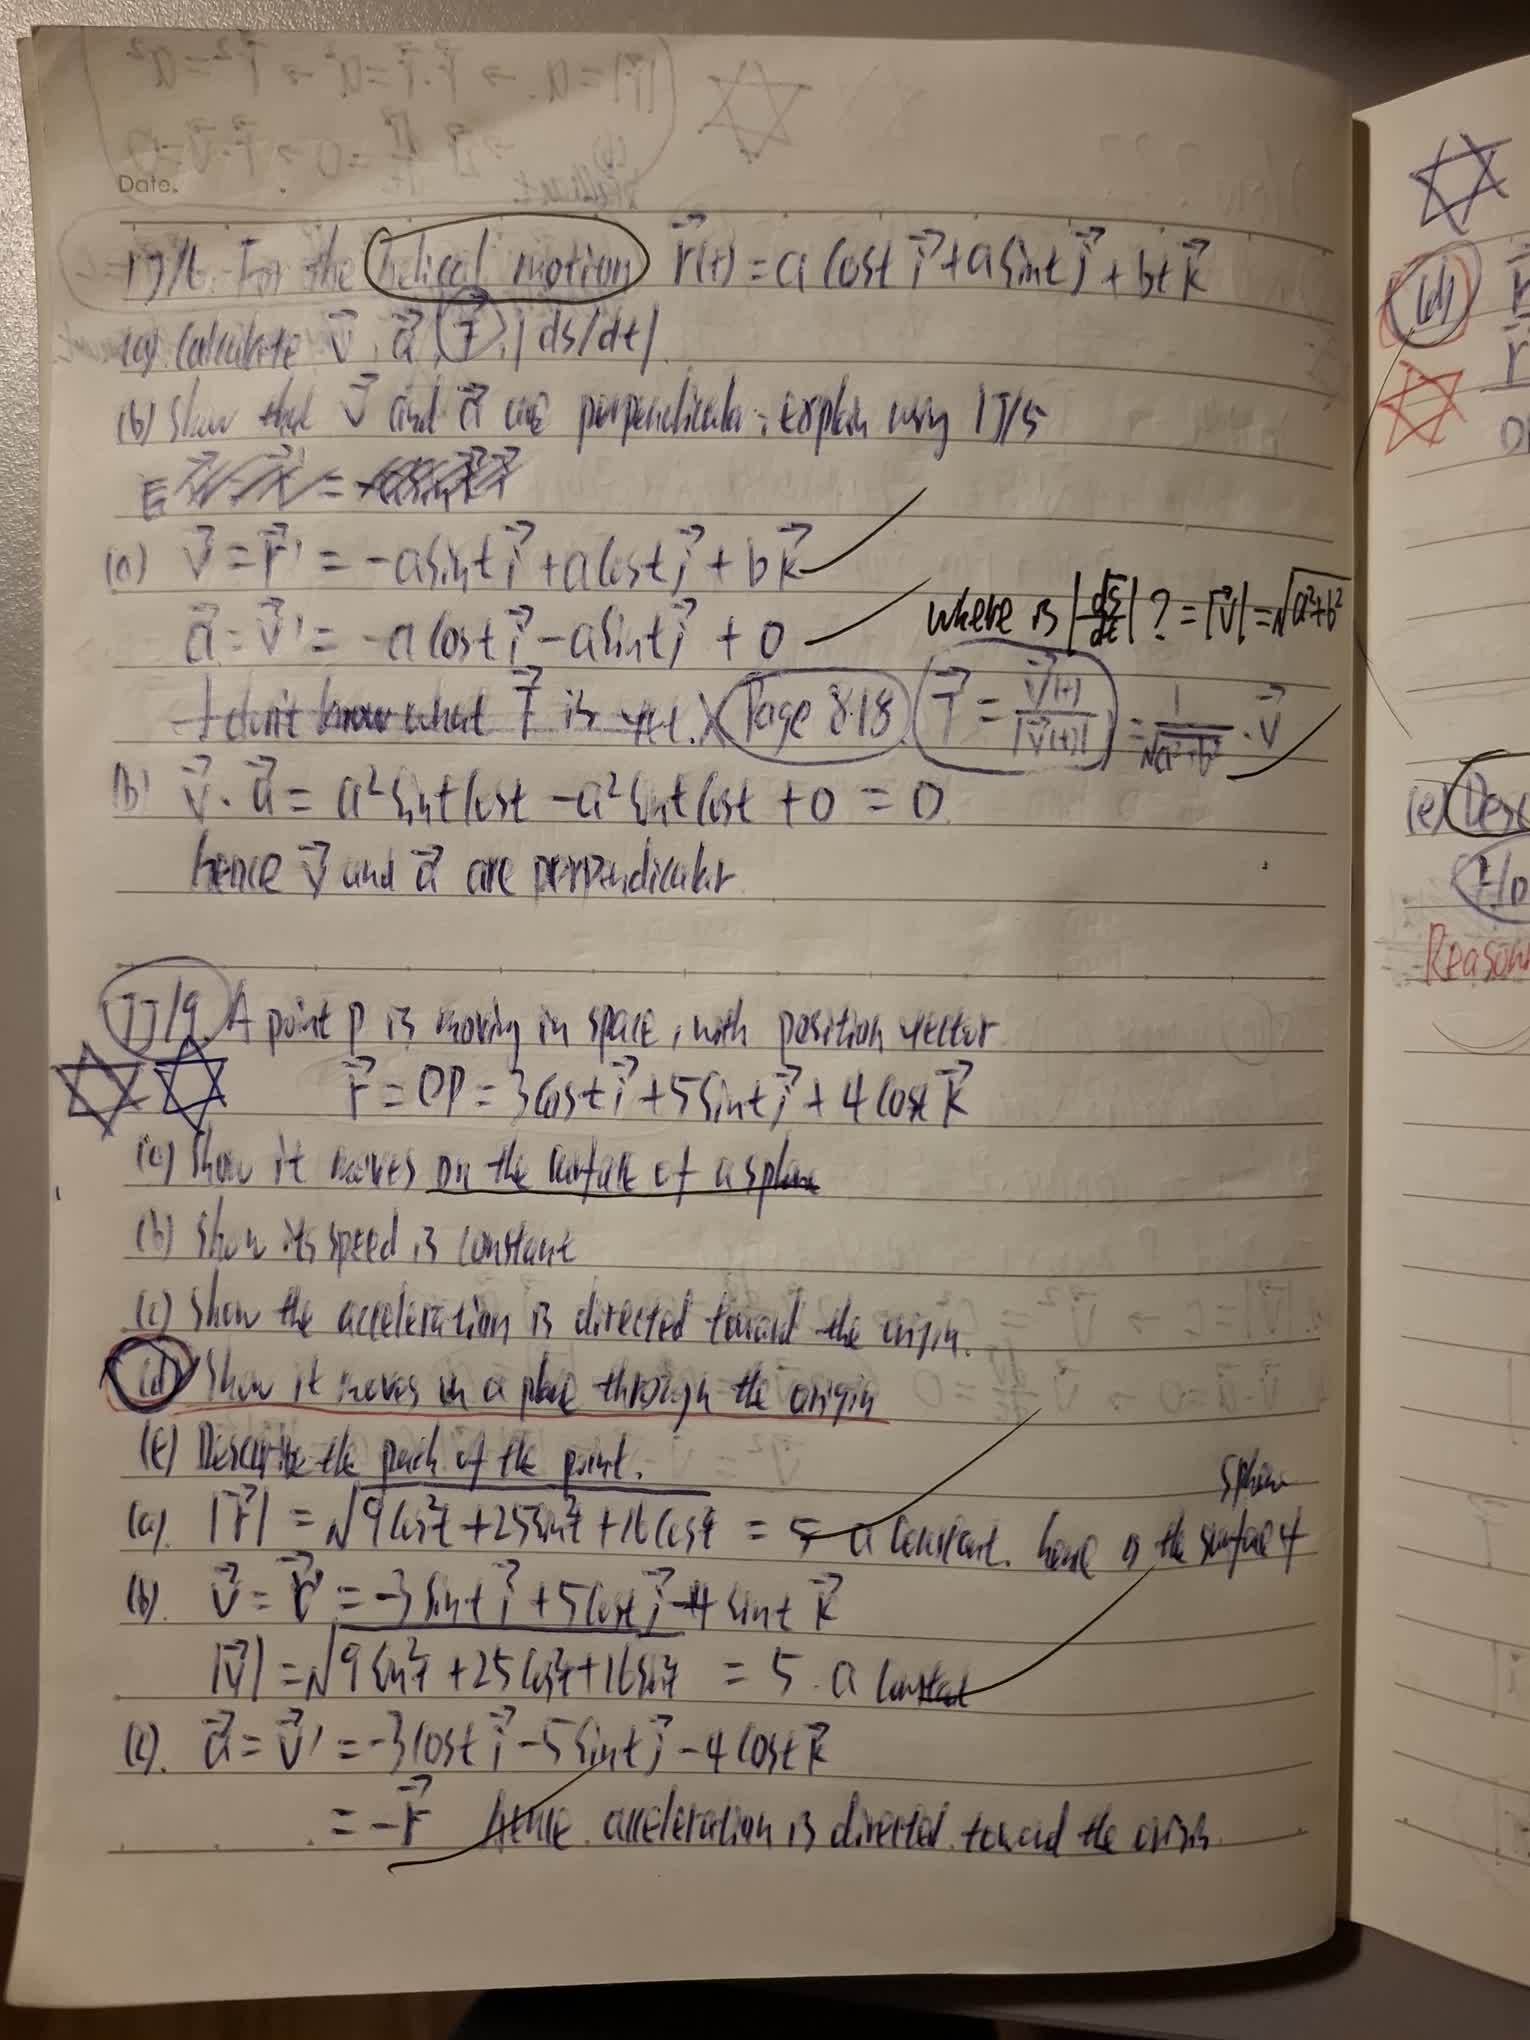 Date.
1J/6. For the helical motion r⃗(t) = a cost i⃗ + a sint j⃗ + bt k⃗
(a) Calculate v⃗, a⃗, T⃗, |ds/dt|
(b) Show that v⃗ and a⃗ are perpendicular; explain using 1J/5
(a) v⃗ = r⃗' = -a sint i⃗ + a cost j⃗ + b k⃗
a⃗ = v⃗' = -a cost i⃗ - a sint j⃗ + 0
where is |ds/dt| ? = |v⃗| = √(a²+b²)
I don't know what T⃗ is yet. X Page 8.18. T⃗ = v⃗(t)/|v⃗(t)| = 1/√(a²+b²) · v⃗
(b) v⃗ · a⃗ = a² sint cost - a² sint cost + 0 = 0
hence v⃗ and a⃗ are perpendicular
1J/9. A point P is moving in space, with position vector
r⃗ = OP = 3 cost i⃗ + 5 sint j⃗ + 4 cost k⃗
(a) Show it moves on the surface of a sphere
(b) Show its speed is constant
(c) Show the acceleration is directed toward the origin.
(d) Show it moves in a plane through the origin
(e) Describe the path of the point.
(a). |r⃗| = √(9cos²t + 25sin²t + 16cos²t) = 5 a constant. hence is the surface of sphere
(b). v⃗ = r⃗' = -3 sint i⃗ + 5 cost j⃗ - 4 sint k⃗
|v⃗| = √(9sin²t + 25cos²t + 16sin²t) = 5. a constant
(c). a⃗ = v⃗' = -3 cost i⃗ - 5 sint j⃗ - 4 cost k⃗
= -r⃗ Hence. acceleration is directed toward the origin.
(d)
(e)
Reason